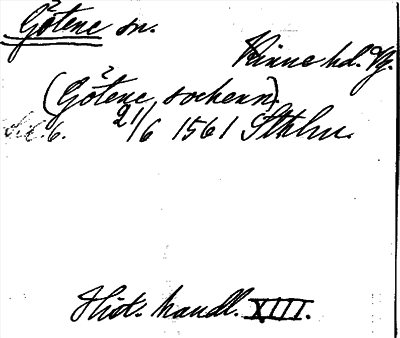 Götene sn.
Kinne hd. Vg.
(Götene, sochenn).
6. 21/6 1561 Sthlm.
Hist. handl. XIII.